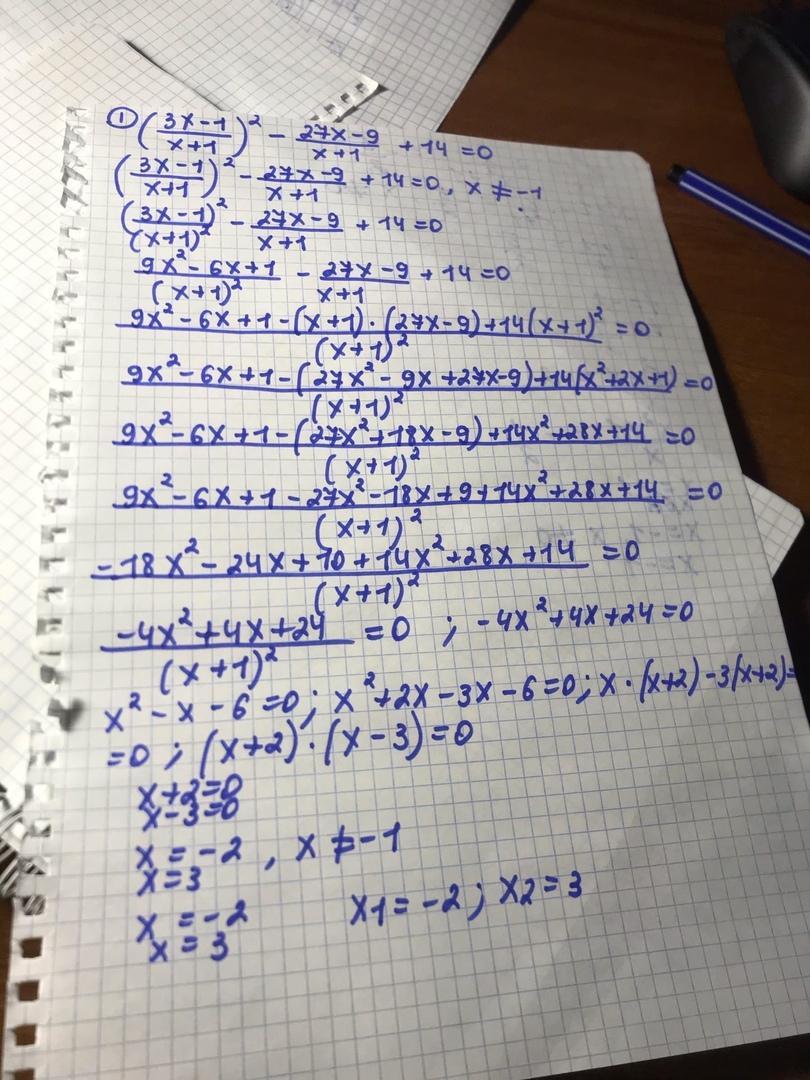 ① ((3x-1)/(x+1))² - (27x-9)/(x+1) + 14 = 0
((3x-1)/(x+1))² - (27x-9)/(x+1) + 14 = 0, x ≠ -1
(3x-1)²/(x+1)² - (27x-9)/(x+1) + 14 = 0
(9x²-6x+1)/(x+1)² - (27x-9)/(x+1) + 14 = 0
(9x²-6x+1-(x+1)·(27x-9)+14(x+1)²)/(x+1)² = 0
(9x²-6x+1-(27x²-9x+27x-9)+14(x²+2x+1))/(x+1)² = 0
(9x²-6x+1-(27x²+18x-9)+14x²+28x+14)/(x+1)² = 0
(9x²-6x+1-27x²-18x+9+14x²+28x+14)/(x+1)² = 0
(-18x²-24x+10+14x²+28x+14)/(x+1)² = 0
(-4x²+4x+24)/(x+1)² = 0 ; -4x²+4x+24=0
x²-x-6=0; x²+2x-3x-6=0; x·(x+2)-3(x+2)=
=0 ; (x+2)·(x-3)=0
x+2=0
x-3=0
x=-2 , x≠-1
x=3
x=-2 x1=-2; x2=3
x=3